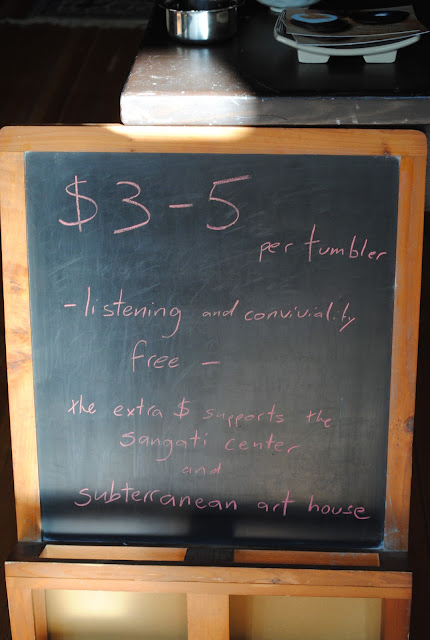 $3-5
per tumbler
- listening and conviviality
free -
the extra $ supports the
sangati center
and
subterranean art house